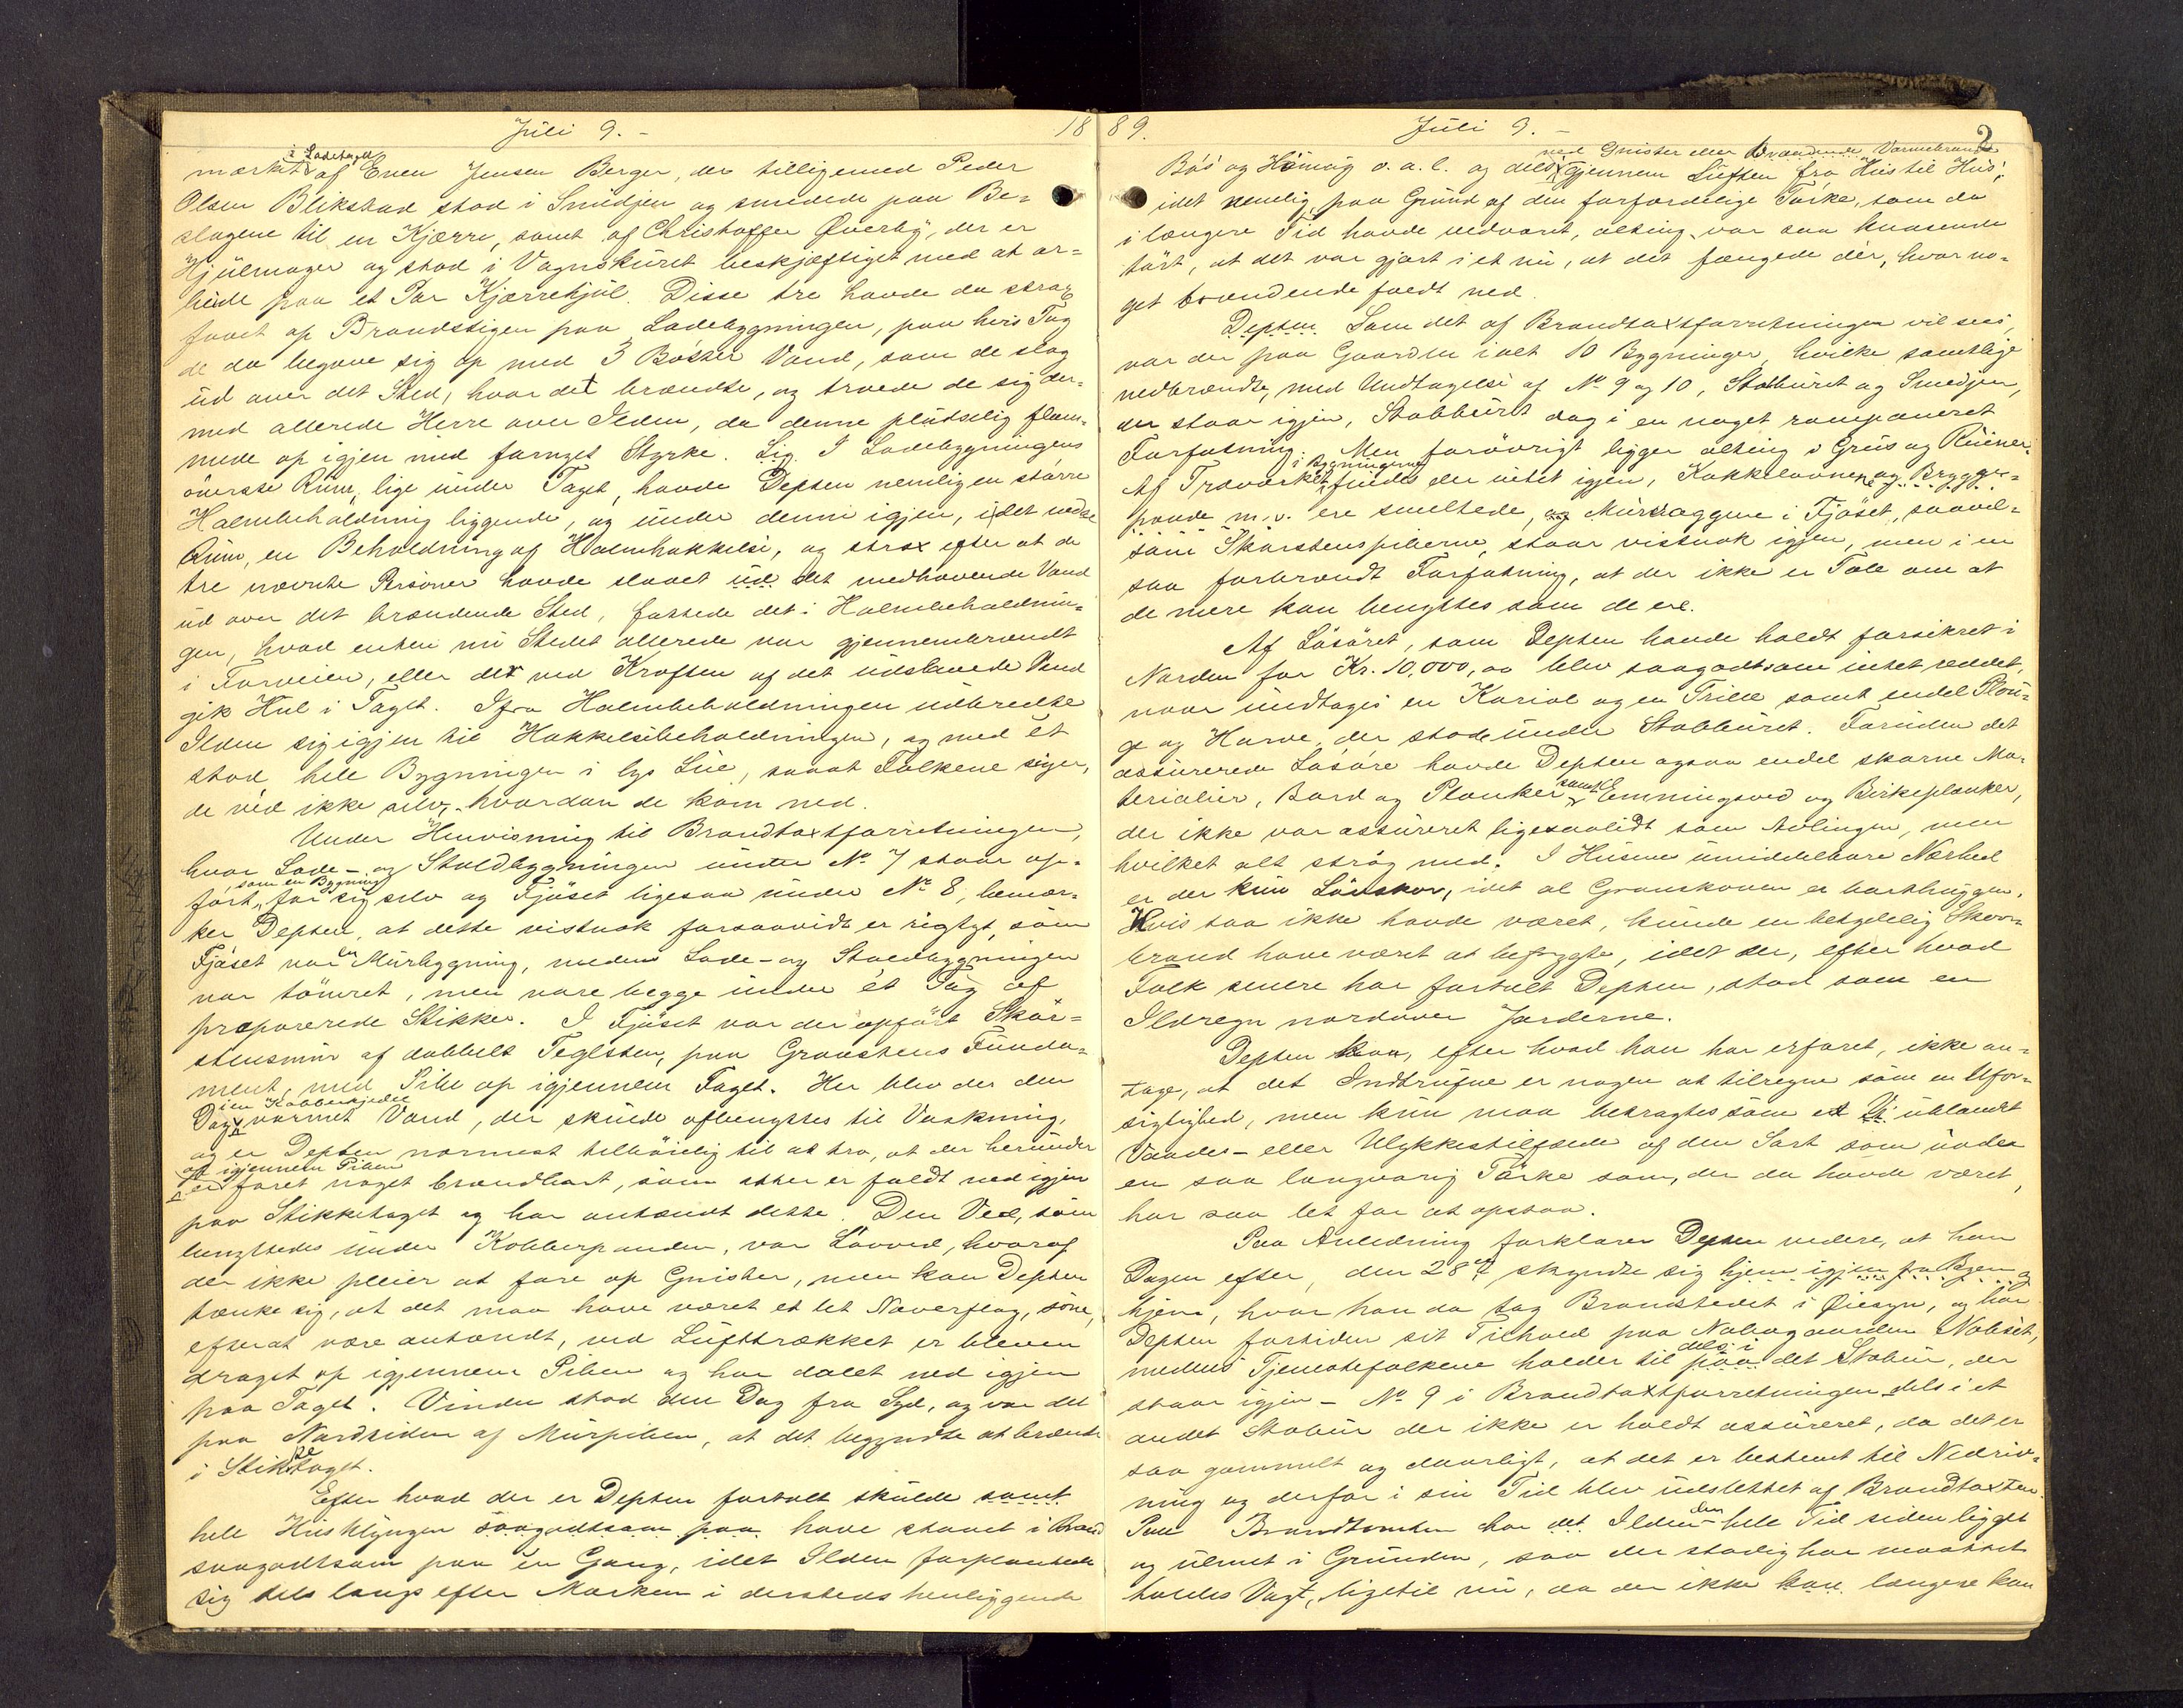 Juli 9. – 18
i Ladetaget
mærket af Even Jensen Berger, der tilligemed Peder
Olsen Blikstad stod i Smidjen og smidede paa Be=
slagene til en Kjærre, samt af Christoffer Øverby, der er
Hjulmager og stod i Vognskuret beskjæftiget med at ar=
beide paa et Par Kjærrehjul. Disse tre havde da strax
faaet op Brandstigen paa Ladebygningen, paa hvis Tag
de da begave sig op med 3 Bøtter Vand, som de slog
ud over det Sted, hvor det brændte, og troede de sig der=
med allerede Herre over Ilden, da denne plutselig flam=
mede op igjen med fornyet Styrke. Sig. I Ladebygningens
øverste Rum, lige under Taget, havde Depten nemlig en større
Halmbeholdning liggende, og under denne igjen, i det nedre
Rum, en Beholdning af Halmhakkelse, og strax efter at de
tre nævnte Personer havde slaaet ud det medhavende Vand
ud over det brændende Sted, fattede det i Halmbeholdnin=
gen, hvad enten nu Stedet allerede var gjennembrændt
i Forveien, eller der ved Kraften af det udslaaede Vand
gik Hul i Taget. Ifra Halmbeholdningen udbredte
Ilden sig igjen til Hakkelsebeholdningen, og med ét
stod hele Bygningen i lys Lue, saaat Folkene siger,
de véd ikke selv, hvordan de kom ned.
Under Henvisning til Brandtaxtforretningen,
hvor Lade- og Staldbygningen under No 7 staar op=
som en Bygning
ført for sig selv og Fjøset ligesaa under No 8, bemær=
ker Depten, at dette vistnok forsaavidt er rigtigt, som
Fjøset var en Murbygning, medens Lade- og Staldbygningen
var tømret, men vare begge under ét Tag af
præparerede Stikker. I Fjøset var der opført Skor=
stensmur af dobbelt Teglsten, paa Graastens Funda=
ment, med Pibe op igjennem Taget. Her blev der den
i en Kobberkjedel
Dag varmet Vand, der skulde afbenyttes til Vaskning,
og er Depten nærmest tilbøielig til at tro, at der herunder
op igjennem Piben
er faret noget brændbart, som atter er faldt ned igjen
paa Stikketaget og har antændt dette. Den Ved, som
benyttedes under Kobberpanden, var Løvved, hvoraf
der ikke pleier at fare op Gnister, men kan Depten
tænke sig, at det maa have været et let Næverflag, som,
efterat være antændt, ved Lufttrækket er bleven
draget op igjennem Piben og har dalet ned igjen
paa Taget. Vinden stod den Dag fra Syd, og var det
paa Nordsiden af Murpiben, at det begyndte at brænde
i Stikketaget.
Efter hvad der er Depten fortalt skulde samt
hele Husklyngen saagodtsom paa have staaet i Brand
saagodtsom paa én Gang, idet Ilden forplantede
sig dels langs efter Marken i dersteds henliggende
89. Juli 9. – 2
ved Gnister eller brændende Varmebrande
Bøs og Hømøg o. a. l. og dels gjennem Luften fra Hus til Hus,
idet nemlig, paa Grund af den forfærdelige Tørke, som da
i længere Tid havde vedvaret, alting var saa knasende
tørt, at det var gjort i et nu, at det fængede dér, hvor no=
get brændende faldt ned.
Depten Som det af Brandtaxtforretningen vil sees,
var der paa Gaarden ialt 10 Bygninger, hvilke samtlige
nedbrændte, med Undtagelse af No 9 og 10, Stabburet og Smedjen,
der staar igjen, Stabburet dog i en noget ramponeret
Forfatning. Men forøvrigt ligger alting i Grus og Ruiner.
i Bygningerne
Af Træværket findes der intet igjen, Kakkelovnene og Brygge=
pande m. v. ere smeltede, og Murvæggene i Fjøset, saavel=
som Skorstenspiberne, staar vistnok igjen, men i en
saa forbrændt Forfatning, at der ikke er Tale om at
de mere kan benyttes som de ere.
Af Løsøret, som Depten havde holdt forsikret i
Norden for Kr. 10,000,00 blev saagodtsom intet reddet,
naar undtages en Kariol og en Trille samt endel Plou=
ge og Harve, der stod under Stabburet. Foruden det
assurerede Løsøre havde Depten ogsaa endel skarne Ma=
terialier, Bord og Planker samt Emningsved og Birkeplanker,
der ikke var assureret ligesaalidt som Avlingen, men
hvilket alt strøg med. I Husenes umiddelbare Nærhed
er der kun Løvskov, idet al Granskoven er borthuggen.
Hvis saa ikke havde været, kunde en betydelig Skov=
brand have været at befrygte, idet der, efter hvad
Folk senere har fortalt Depten, stod som en
Ildregn nordover Jorderne.
Depten kan, efter hvad han har erfaret, ikke an=
tage, at det Indtrufne er nogen at tilregne som en Ufor=
sigtighed, men kun maa betragtes som et Vi ublandt
Vaades- eller Ulykkestilfælde af den Sort som under
en saa langvarig Tørke som, der da havde været,
har saa let for at opstaa.
Paa Anledning forklarer Depten videre, at han
Dagen efter, den 28de skyndte sig hjem igjen fra Byen og
hjem, hvor han da tog Brandstedet i Øiesyn, og har
Depten fortiden sit Tilhold paa Nabogaarden Nabset,
dels i
medens Tjenestefolkene holder til paa det Stabur, der
staar igjen – No 9 i Brandtaxtforretningen dels i et
andet Stabur der ikke er holdt assureret, da det er
saa gammelt og daarligt, at det er bestemt til Nedriv=
ning og derfor i sin Tid blev udslettet af Brandtaxten.
Paa Brandtomten har det Ilden den hele Tid siden ligget
og ulmet i Grunden, saa der stadig har maattet
holdes Vagt, ligetil nu, da der ikke kan længere kan